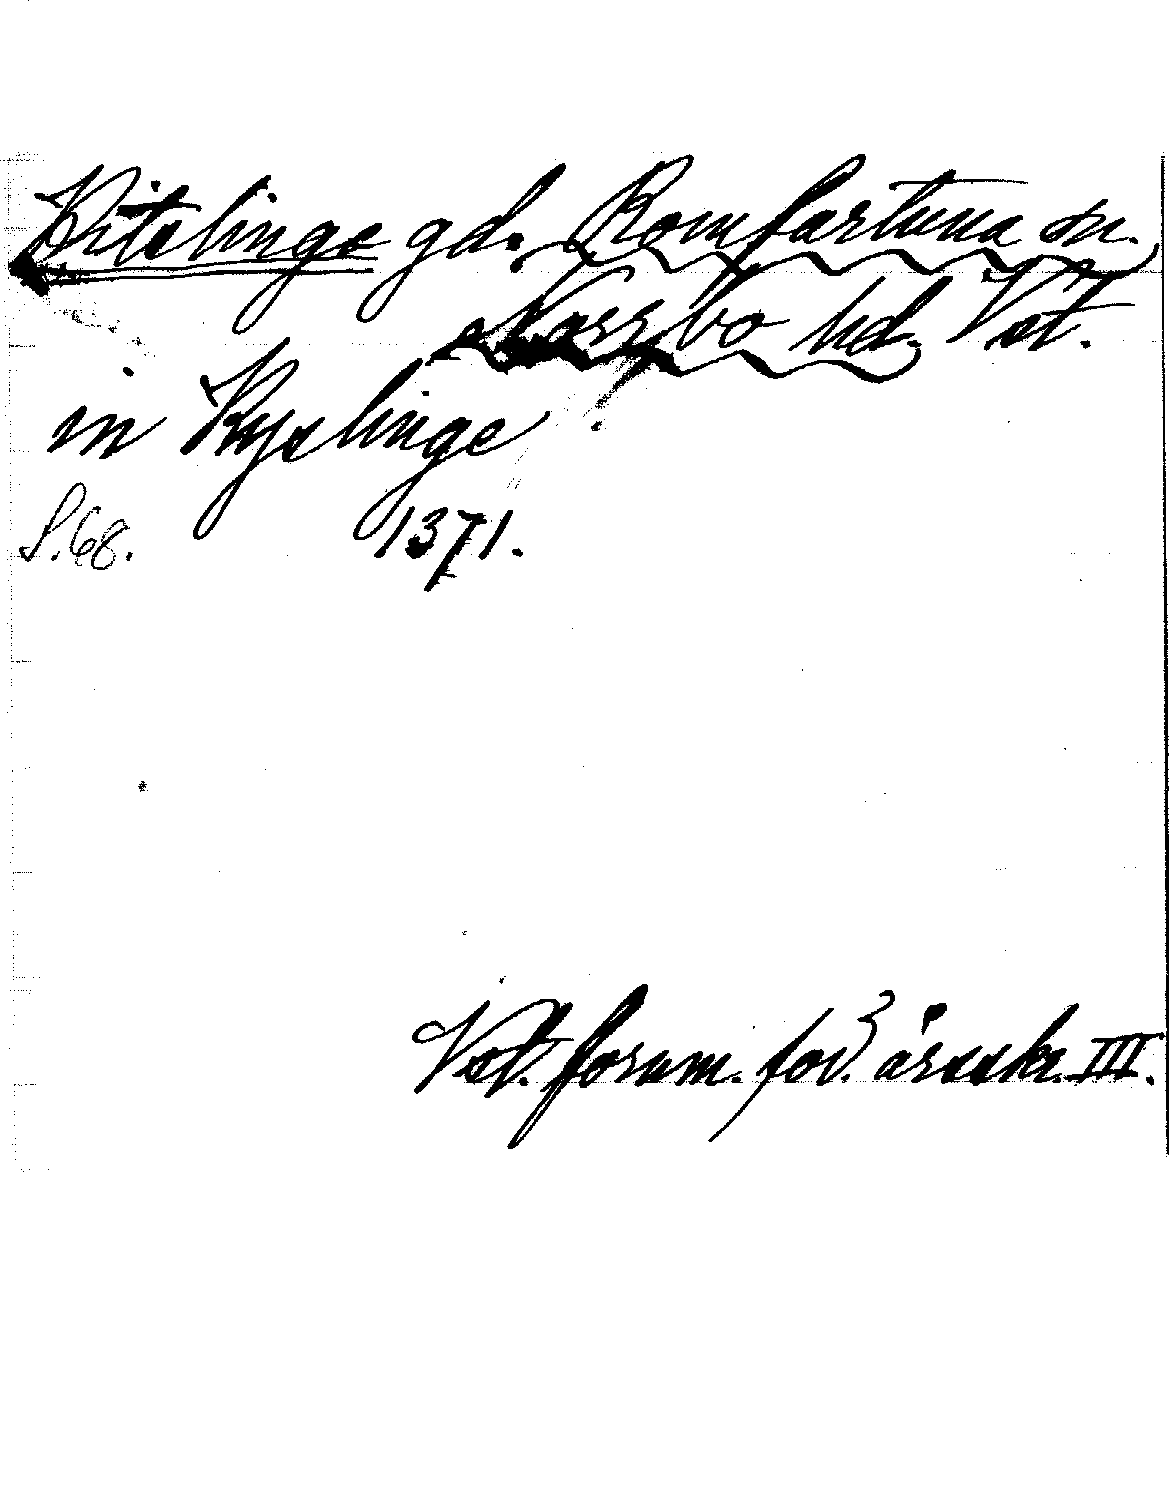 Kitslinge gd. Romfartuna sn.
Norrbo hd. Vst.
in Kyslinge
S. 68. 1371.
Vst. fornm. för. årsskr. III.